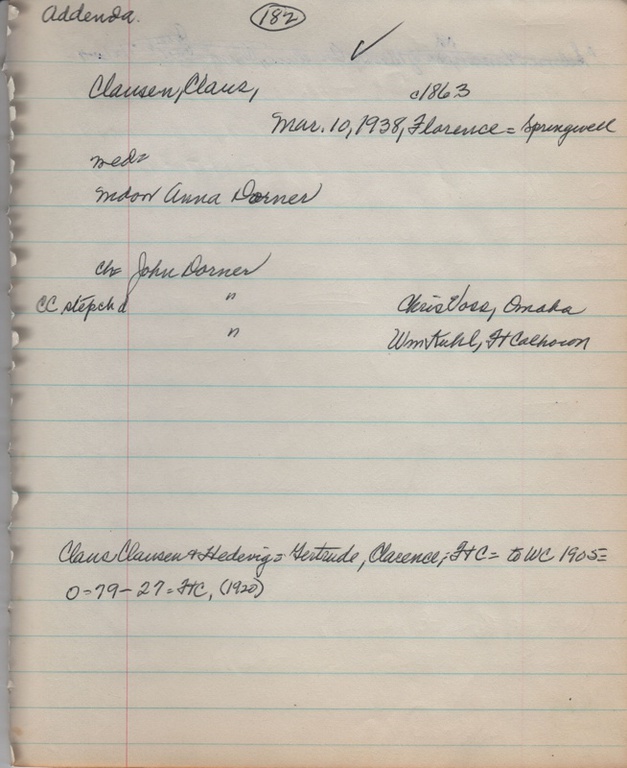 Addenda. 182
Clausen, Claus, c1863
Mar. 10, 1938, Florence = Springwell
med=
Mdow Anna Dorner
ch= John Dorner
CC stepchd " Chris Voss, Omaha
" Wm Kuhl, Ft Calhoun
Claus Clausen & Hedevig = Gertrude, Clarence; Ft C = to WC 1905 =
0 = 79 - 27 = Ft C, (1920)